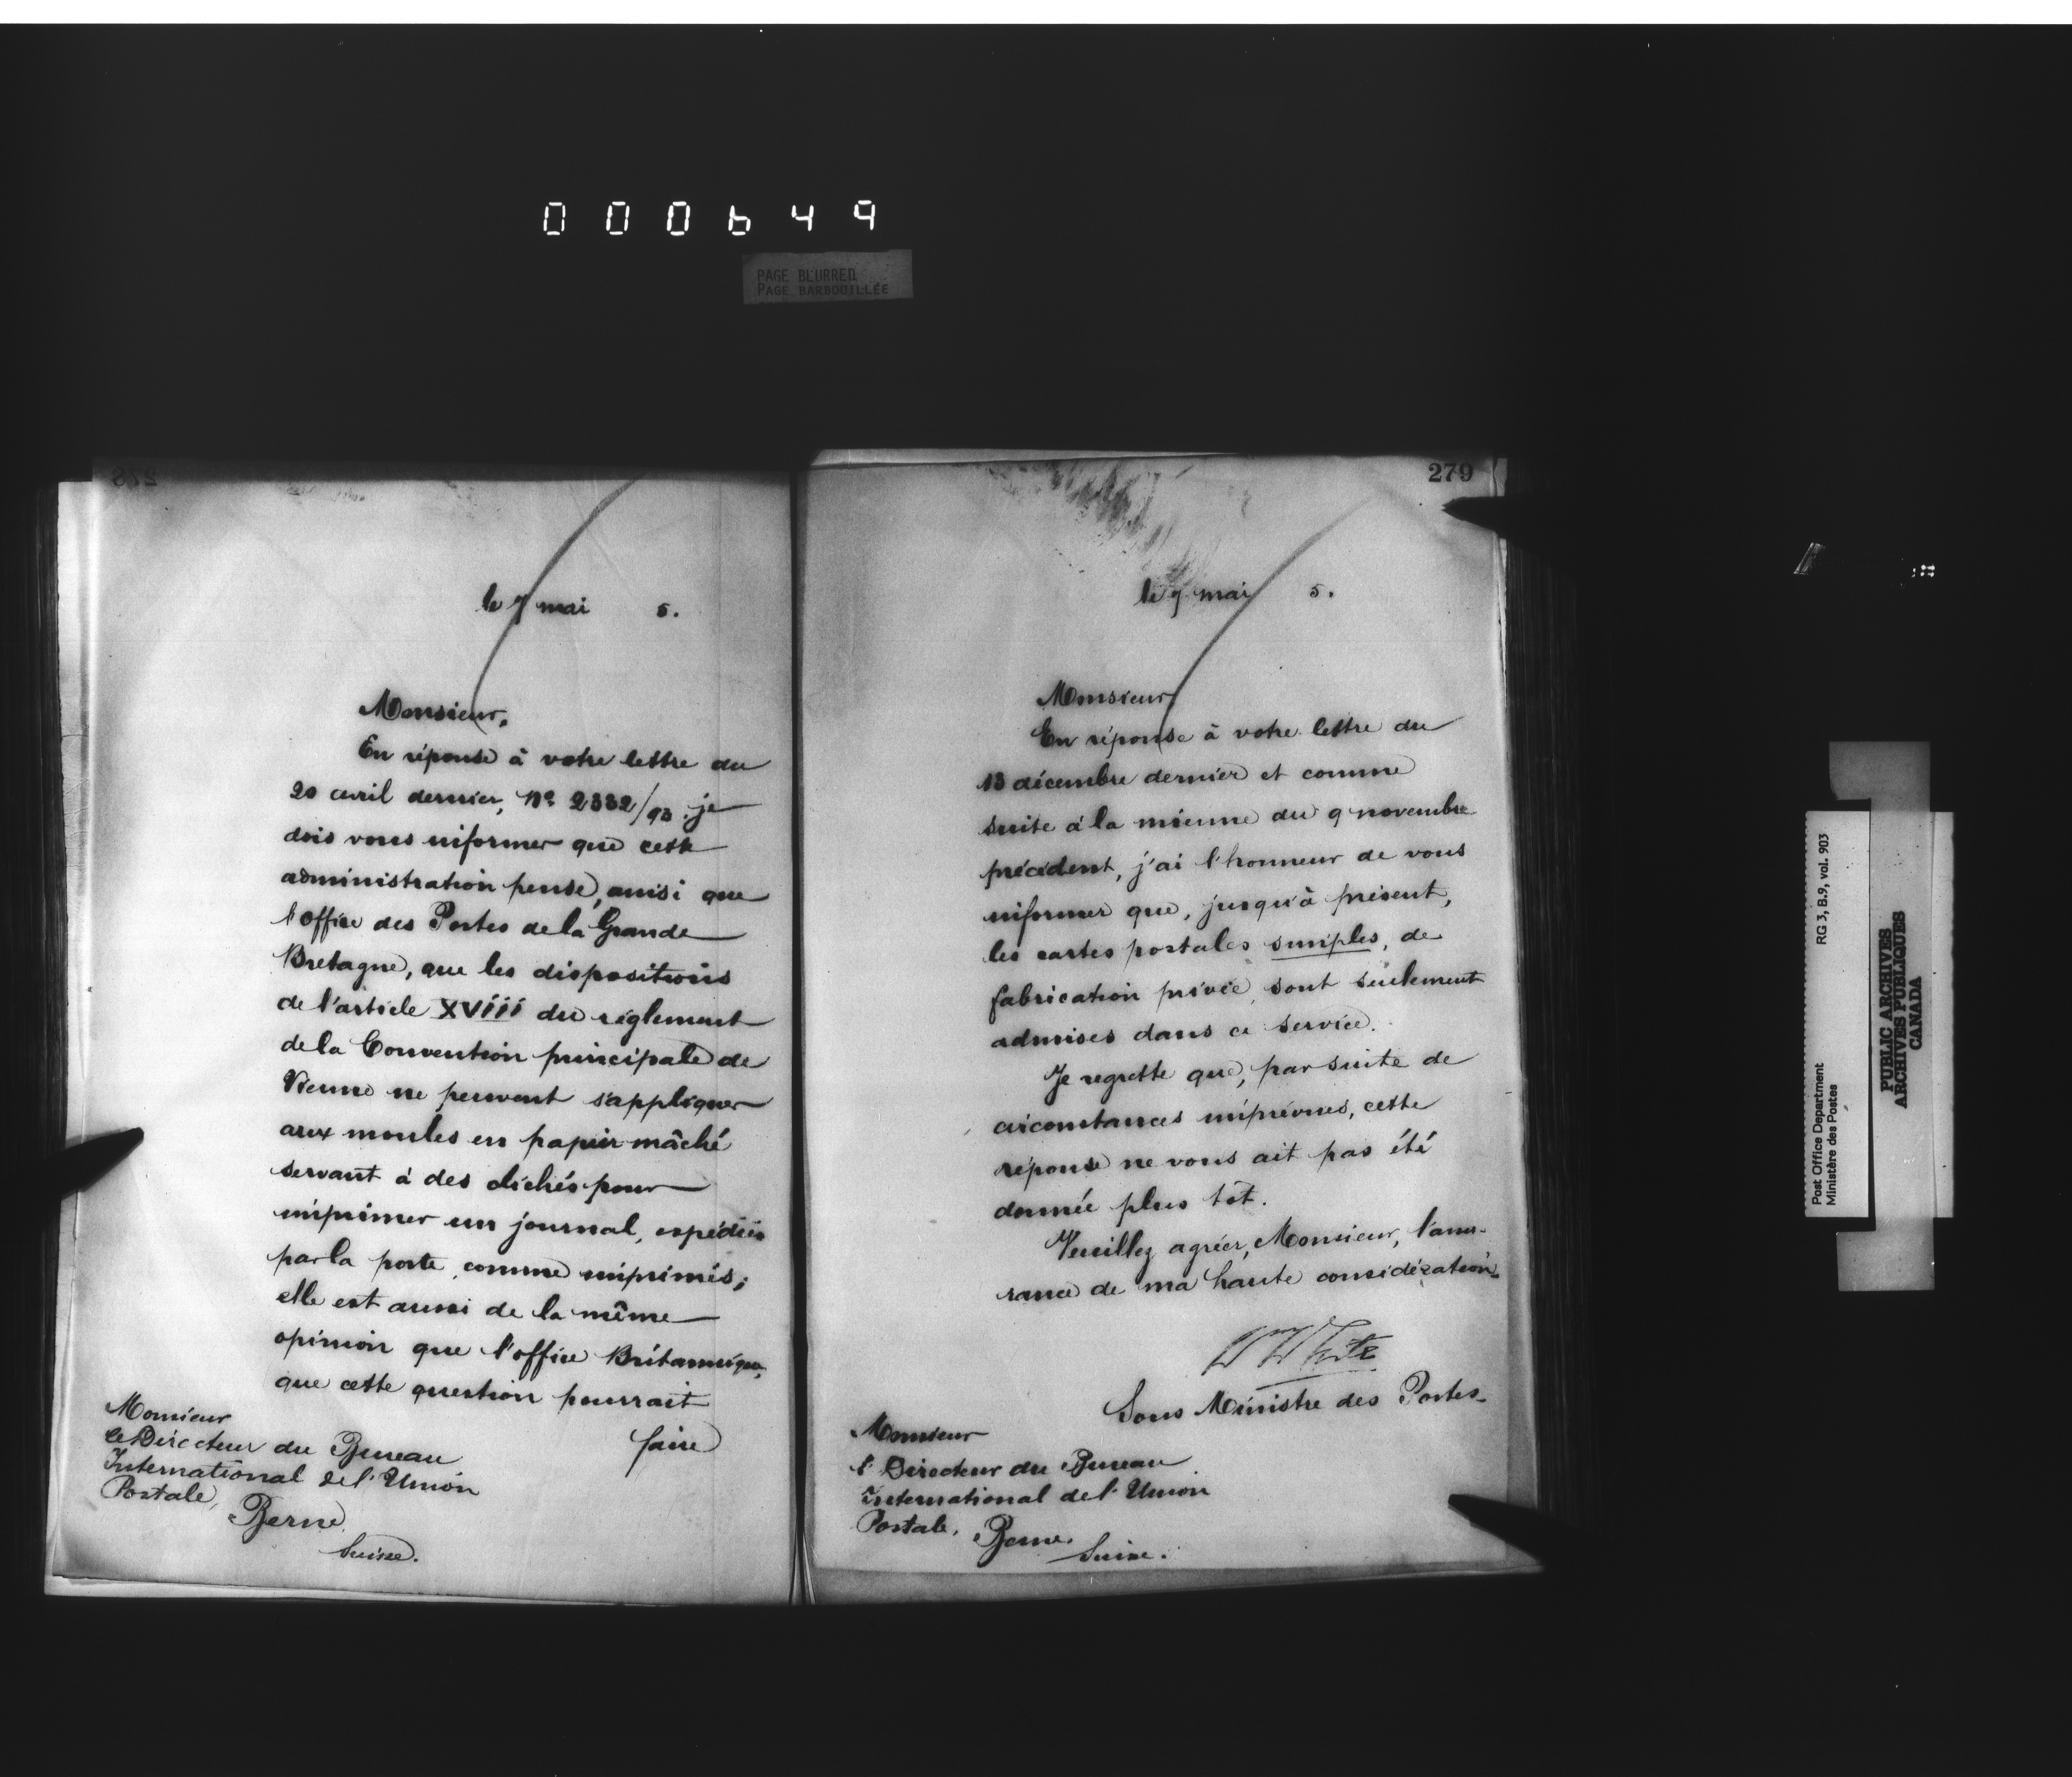 000649
PAGE BLURRED
PAGE BARBOUILLÉE
278
le 7 mai 5.
Monsieur,
En réponse à votre lettre du
20 avril dernier, No 2332/93. je
dois vous informer que cette
administration pense, ainsi que
l'Office des Postes de la Grande
Bretagne, que les dispositions
de l'article XVIII du réglement
de la Convention principale de
Vienne ne peuvent s'appliquer
aux moules en papier mâché
servant à des clichés pour
imprimer un journal, expédiés
par la poste, comme imprimés;
elle est aussi de la même
opinion que l'office Britannique,
que cette question pourrait
faire
Monsieur
le Directeur du Bureau
International de l'Union
Postale,
Berne,
Suisse.
279
le 7 mai 5.
Monsieur,
En réponse à votre lettre du
13 décembre dernier et comme
suite à la mienne du 9 novembre
précédent, j'ai l'honneur de vous
informer que, jusqu'à présent,
les cartes postales simples, de
fabrication privée, sont seulement
admises dans ce service.
Je regrette que, par suite de
circonstances imprévues, cette
réponse ne vous ait pas été
donnée plus tôt.
Veuillez agréer, Monsieur, l'assu-
rance de ma haute considération.
Wm White
Sous Ministre des Postes.
Monsieur
l' Directeur du Bureau
International de l'Union
Postale,
Berne,
Suisse.
Post Office Department RG 3, B.9, vol. 903
Ministère des Postes
PUBLIC ARCHIVES
ARCHIVES PUBLIQUES
CANADA